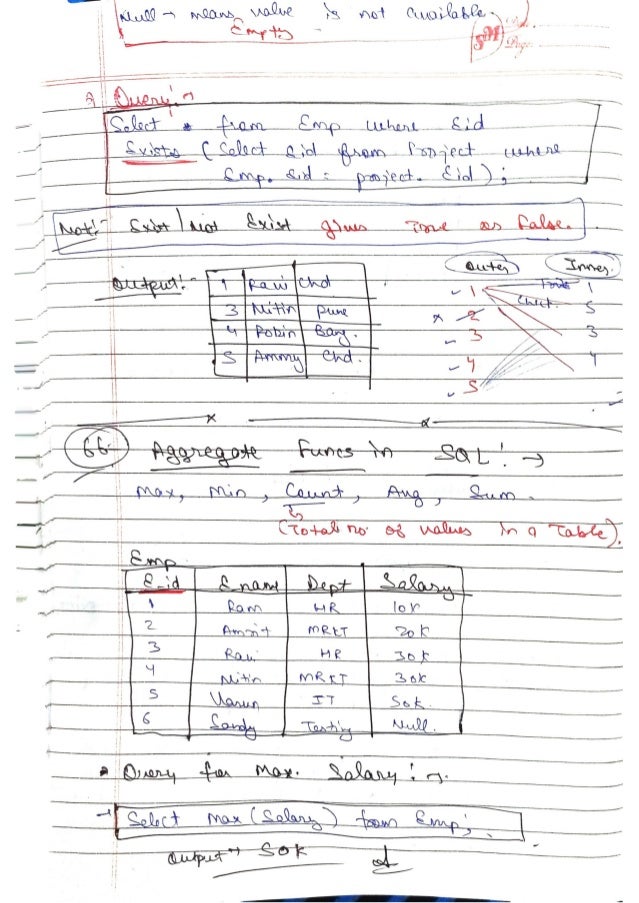 Null → means value is not available.
Empty
SM
Date
Page
Query:→
Select * from Emp where Eid
Exists (Select Eid from Project where
Emp. Eid = project. Eid);
Not:- Exist / Not Exist gives True or False.
Outer Inner
Output:- 1 Ravi Chd
3 Nitin Pune
4 Robin Bang.
5 Ammy Chd.
1 True 1
x 2 Check 5
3 3
4 4
5
x x
66. Aggregate Funcs in SQL:→
Max, Min, Count, Avg, Sum.
(Total no. of values in a Table).
Emp
E_id Ename Dept Salary
1 Ram HR 10K
2 Amrit MRKT 20K
3 Ravi HR 30K
4 Nitin MRKT 30K
5 Varun IT 50K
6 Sandy Testing Null.
Query for Max. Salary:→
→ Select Max (Salary) from Emp;
Output → 50K